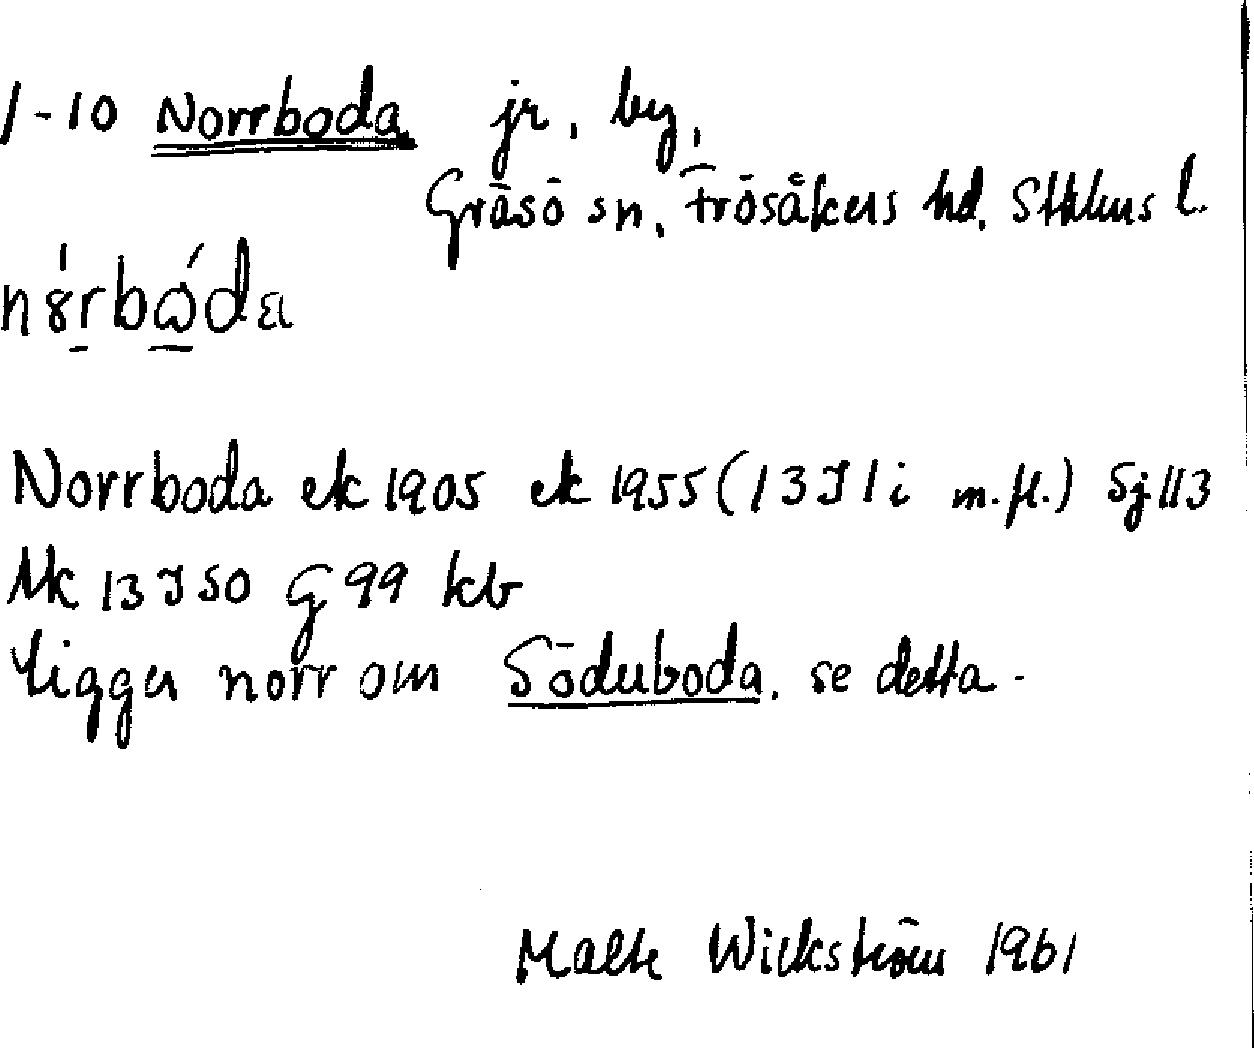 1-10 Norrboda jr. by,
Gräsö sn, Frösåkers hd. Sthlms l.
Norrboda ek 1905 ek 1955 (13I1i m.fl.) Sj 113
Mk 13I SO G 99 kb
ligger norr om Söderboda, se detta.
Malte Wickström 1961